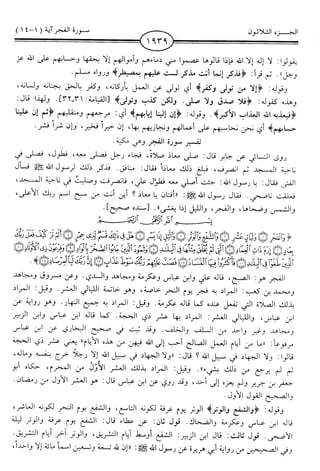 الجزء الثلاثون
١٩٣٩
سورة الفجر آية (١-١٤)
يقولوا: لا إله إلا الله فإذا قالوها عصموا مني دماءهم وأموالهم إلا بحقها وحسابهم على الله عز
وجل». ثم قرأ: ﴿فذكر إنما أنت مذكر لست عليهم بمصيطر﴾ ورواه مسلم.
وقوله: ﴿إلا من تولى وكفر﴾ أي تولى عن العمل بأركانه، وكفر بالحق بجنانه ولسانه،
وهذه كقوله: ﴿فلا صدق ولا صلى. ولكن كذب وتولى﴾ [القيامة: ٣١-٣٢]. ولهذا قال:
﴿فيعذبه الله العذاب الأكبر﴾. وقوله: ﴿إن إلينا إيابهم﴾ أي: مرجعهم ومنقلبهم ﴿ثم إن علينا
حسابهم﴾ أي نحن نحاسبهم على أعمالهم ونجازيهم بها، إن خيراً فخير، وإن شراً فشر.
تفسير سورة الفجر وهي مكية.
روى النسائي عن جابر قال: صلى معاذ صلاة، فجاء رجل فصلى معه، فطول، فصلى في
ناحية المسجد ثم انصرف، فبلغ ذلك معاذاً فقال: منافق. فذكر ذلك لرسول الله ﷺ فسأل
الفتى فقال: يا رسول الله: جئت أصلي معه فطول علي، فانصرفت وصليت في ناحية المسجد،
فعلفت ناضحي. فقال رسول الله ﷺ: «أفتان يا معاذ؟ أين أنت من سبح اسم ربك الأعلى،
والشمس وضحاها، والفجر، والليل إذا يغشى». [سنده صحيح].
الفجر هو: الصبح، قاله علي وابن عباس وعكرمة ومجاهد والسدي. وعن مسروق ومجاهد
ومحمد بن كعب: المراد به فجر يوم النحر خاصة، وهو خاتمة الليالي العشر. وقيل: المراد
بذلك الصلاة التي تفعل عنده كما قاله عكرمة. وقيل: المراد به جميع النهار. وهو رواية عن
ابن عباس، والليالي العشر: المراد بها عشر ذي الحجة. كما قاله ابن عباس وابن الزبير
ومجاهد وغير واحد من السلف والخلف. وقد ثبت في صحيح البخاري عن ابن عباس
مرفوعاً: «ما من أيام العمل الصالح أحب إلى الله فيهن من هذه الأيام» يعني عشر ذي الحجة
قالوا: ولا الجهاد في سبيل الله؟ قال: «ولا الجهاد في سبيل الله إلا رجلاً خرج بنفسه وماله،
ثم لم يرجع من ذلك بشيء». وقيل: المراد بذلك العشر الأول من المحرم، حكاه أبو
جعفر بن جرير ولم يعزه إلى أحد، وقد روي عن ابن عباس قال: هو العشر الأول من رمضان.
والصحيح القول الأول.
وقوله: ﴿والشفع والوتر﴾ الوتر يوم عرفة لكونه التاسع، والشفع يوم النحر لكونه العاشر،
قاله ابن عباس وعكرمة والضحاك. قول ثان: عن عطاء قال: الشفع يوم عرفة والوتر ليلة
الأضحى. قول ثالث: قال ابن الزبير: الشفع أوسط أيام التشريق، والوتر آخر أيام التشريق.
وفي الصحيحين من رواية أبي هريرة عن رسول الله ﷺ: «إن لله تسعة وتسعين اسماً مائة إلا واحداً،